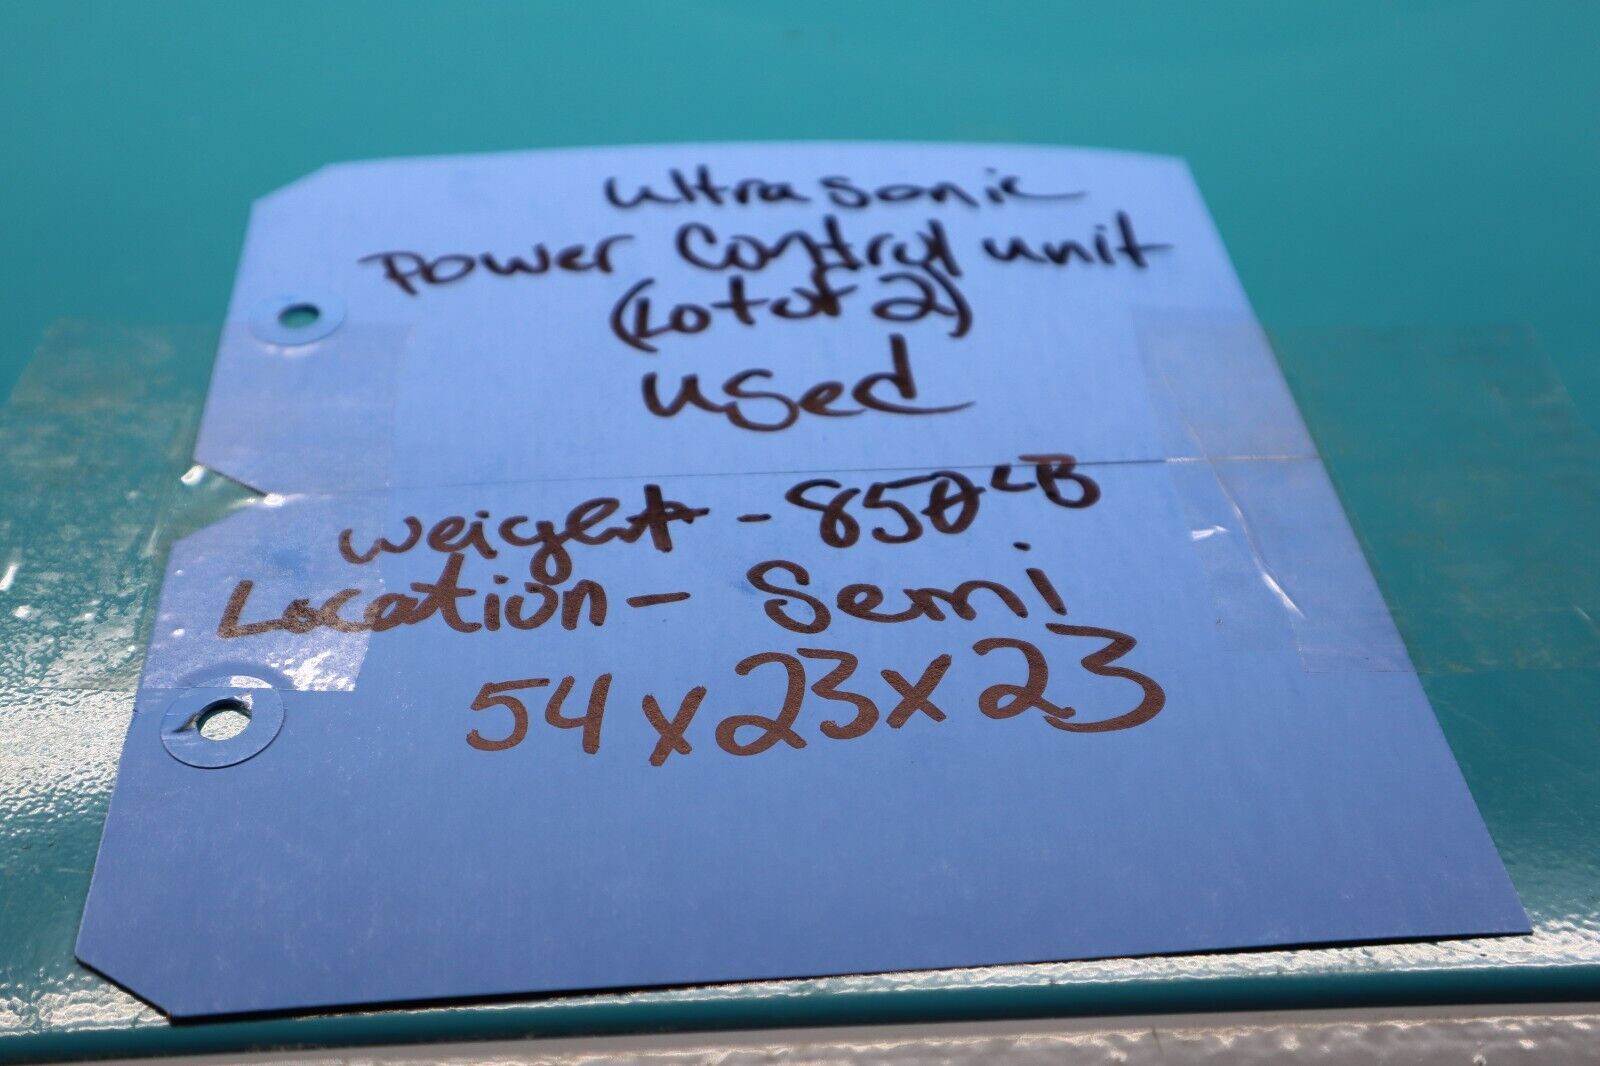 Ultrasonic
Power Control unit
(Lot of 2)
Used
Weight - 850 LB
Location - Semi
54 x 23 x 23